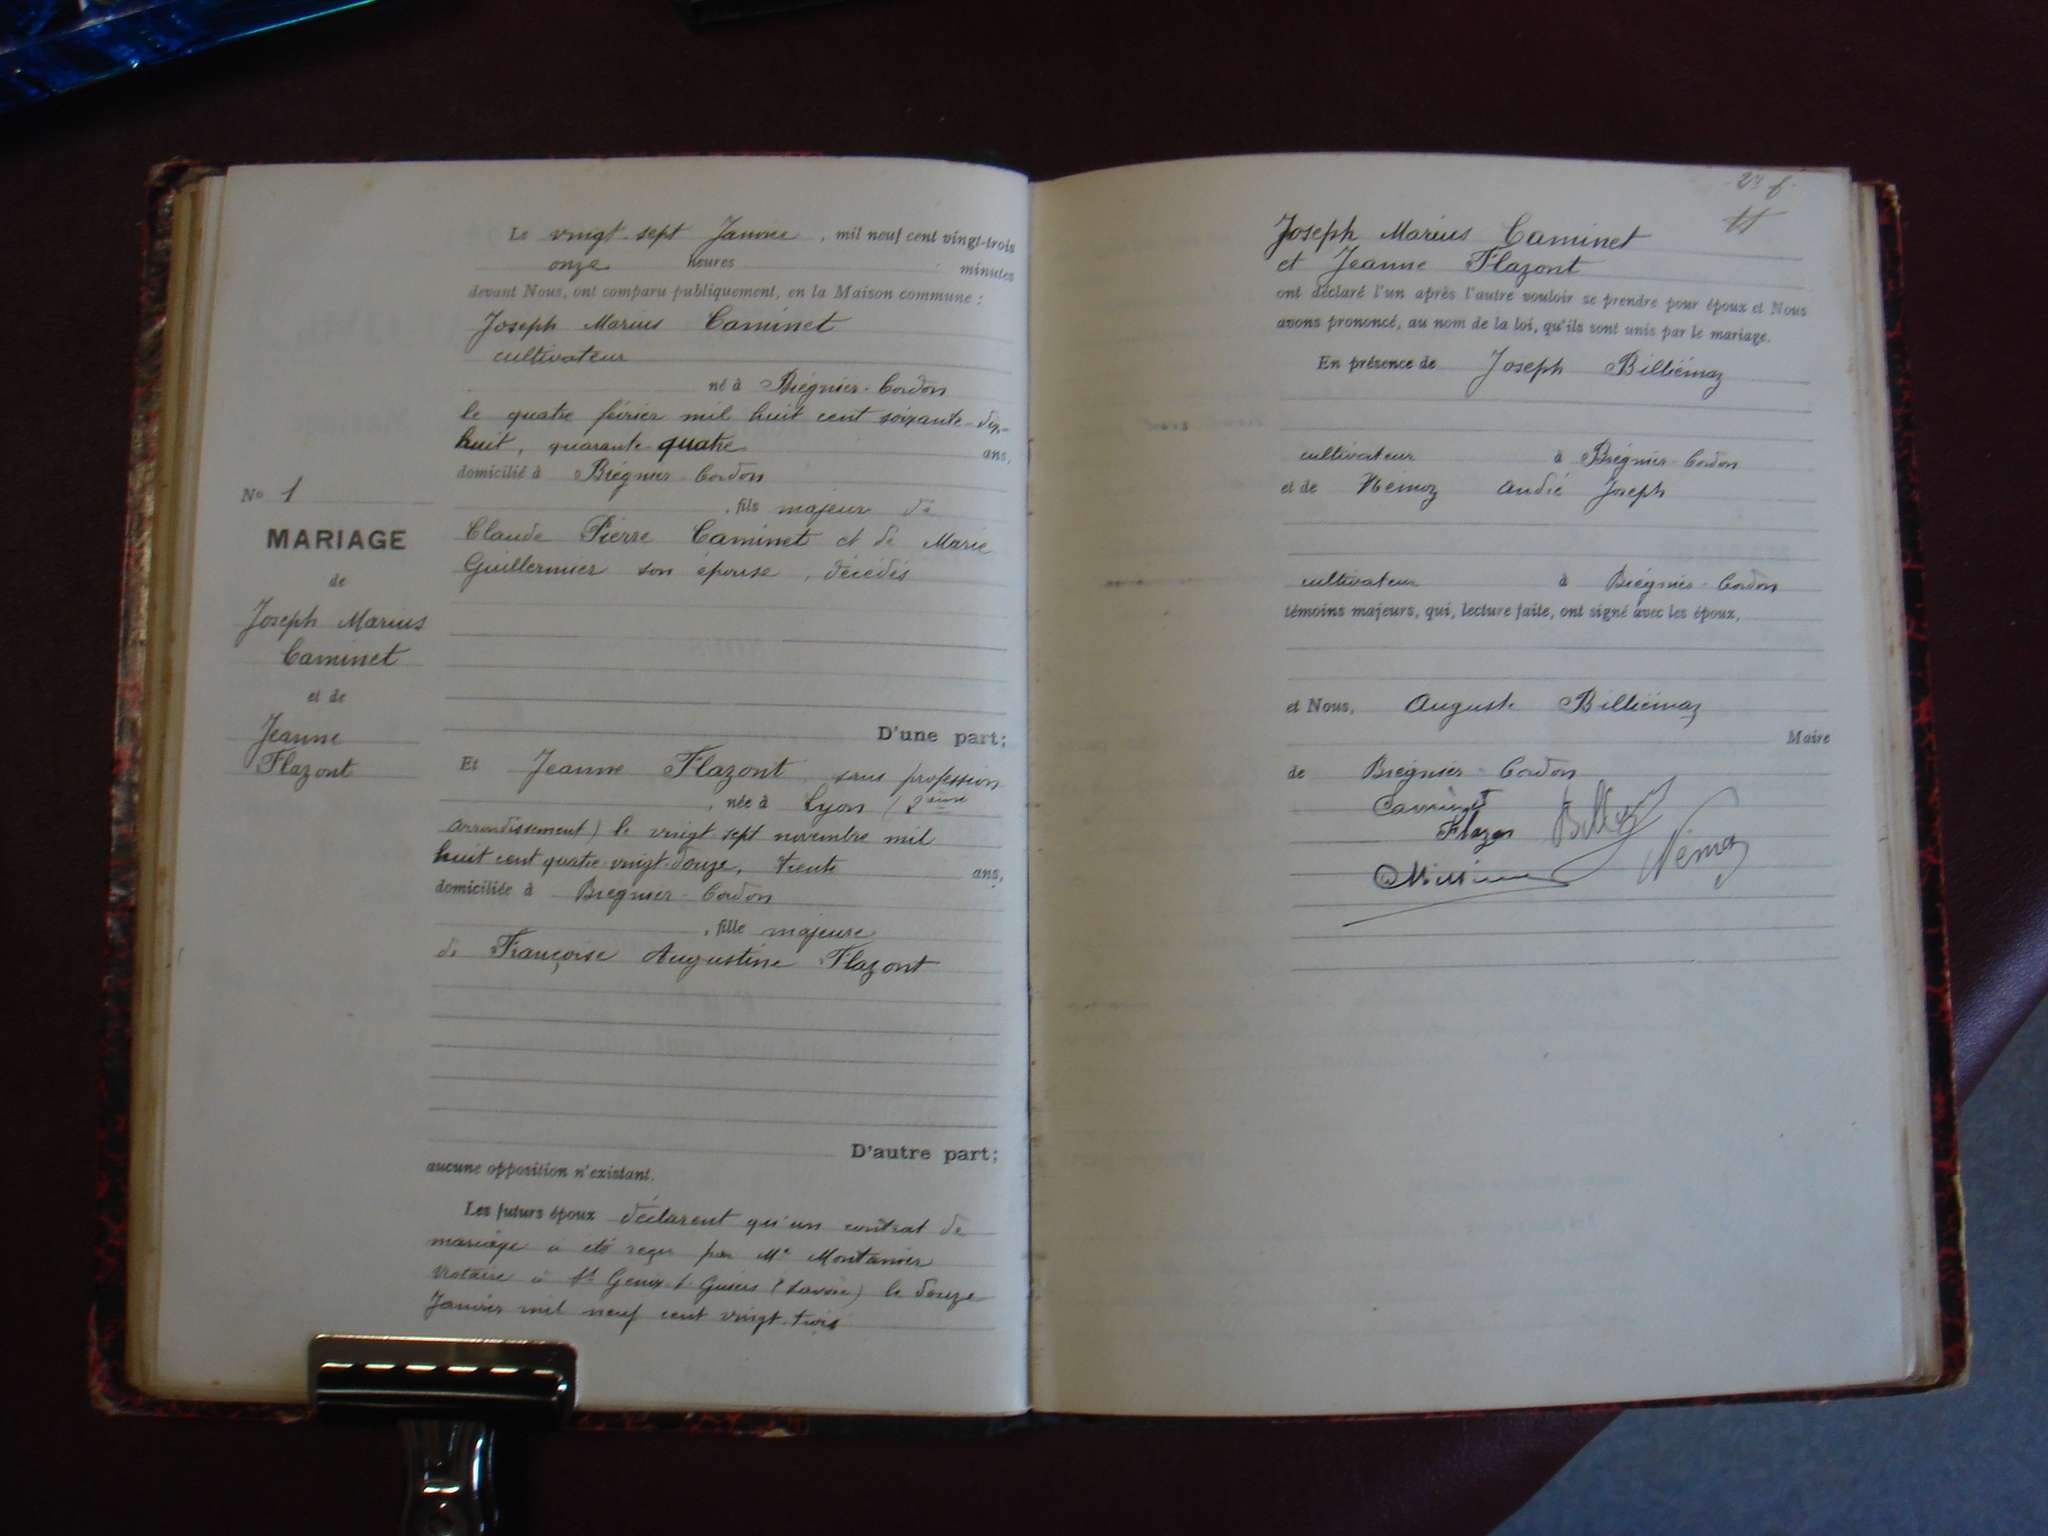 N° 1
MARIAGE
de
Joseph Marius
Caminet
et de
Jeanne
Flazont
Le vingt-sept Janvier, mil neuf cent vingt-trois
onze heures minutes
devant Nous, ont comparu publiquement, en la Maison commune :
Joseph Marius Caminet
cultivateur
né à Brégnier-Cordon
le quatre février mil huit cent soixante-dix-
huit, quarante quatre ans,
domicilié à Brégnier-Cordon
, fils majeur de
Claude Pierre Caminet et de Marie
Guillermier son épouse, décédés
D'une part;
Et Jeanne Flazont sans profession
, née à Lyon (2ème
arrondissement) le vingt sept novembre mil
huit cent quatre-vingt-douze, trente ans,
domiciliée à Brégnier-Cordon
, fille majeure
de Françoise Augustine Flazont
D'autre part;
aucune opposition n'existant.
Les futurs époux déclarent qu'un contrat de
mariage a été reçu par Me Montanier
Notaire à St Genix s. Guiers (Savoie) le douze
Janvier mil neuf cent vingt-trois
Joseph Marius Caminet
et Jeanne Flazont
ont déclaré l'un après l'autre vouloir se prendre pour époux et Nous
avons prononcé, au nom de la loi, qu'ils sont unis par le mariage.
En présence de Joseph Billiémaz
cultivateur à Brégnier-Cordon
et de Némoz André Joseph
cultivateur à Brégnier-Cordon
témoins majeurs, qui, lecture faite, ont signé avec les époux,
et Nous, Auguste Billiémaz
Maire
de Brégnier-Cordon
Caminet
Flazon
Némoz